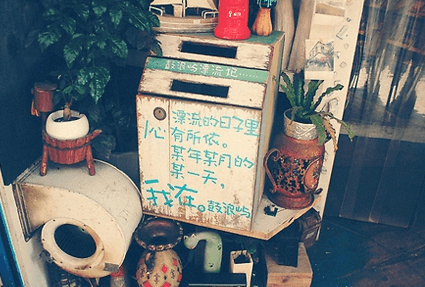 鼓浪屿漂流记
漂流的日子里
心有所依。
某年某月的
某一天,
我在。鼓浪屿